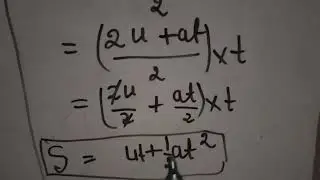 2
= (2u + at / 2) × t
= (2u/2 + at/2) × t
S = ut + 1/2 at²